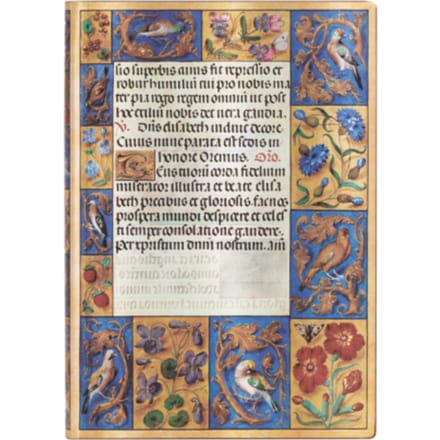 sio superbis cuius fit repressio et
robur humilium tui pro nobis ma
ter pia rogo regem omnium ut post
hoc exilium nobis det vera gaudia.
V. Diis elisabeth in die decore.
Cuius nunc parata est sedis in
honore Oremus. Oro.
Deus tuorum corda fidelium
miserator illustra et beate elisa
beth precibus et gloriosis. fac nos
prospera mundi despicere et celes
ti semper consolatione gaudere.
Per xpristum dnm nostrum. am